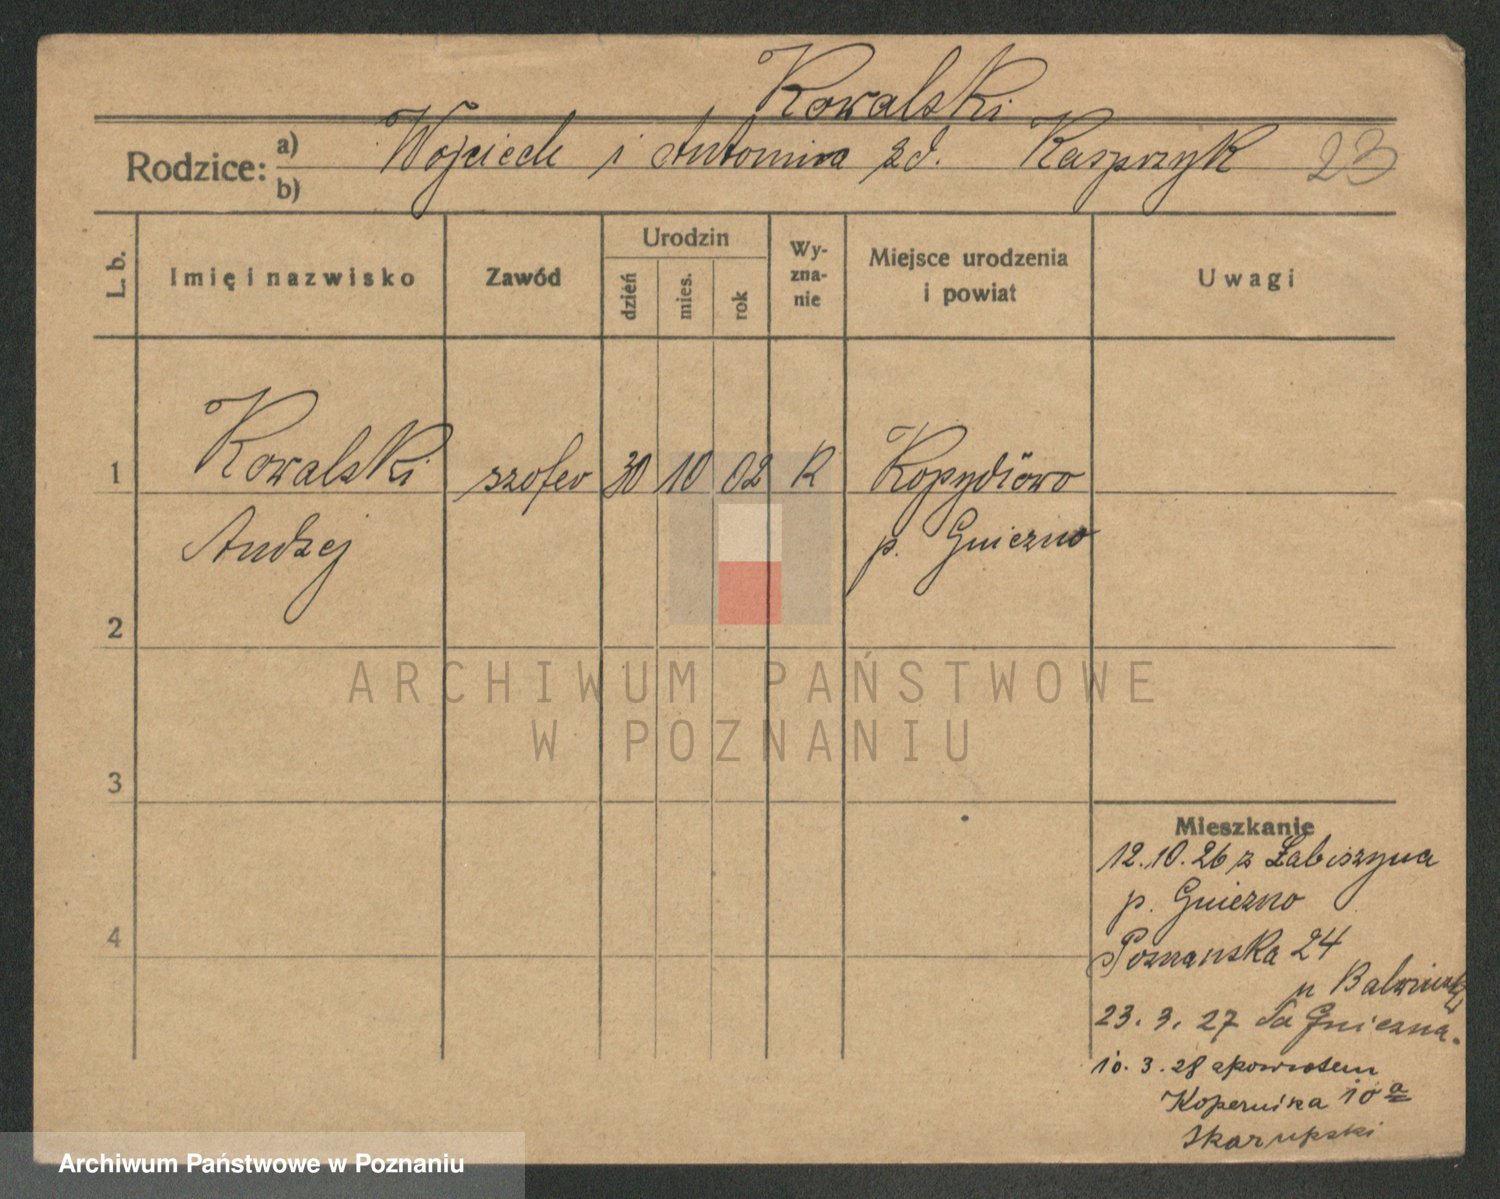 Kowalski
Rodzice: a) Wojciech i Antonina zd. Kasprzyk 23
b)
L. b.
Imię i nazwisko
Zawód
Urodzin
dzień
mies.
rok
Wy-
zna-
nie
Miejsce urodzenia
i powiat
Uwagi
1 Kowalski szofer 30 10 02 R Kopydłowo
Andrzej p. Gniezno
2
3
4
ARCHIWUM PAŃSTWOWE
W POZNANIU
Mieszkanie
12.10.26 z Łabiszyna
p. Gniezno
Poznanska 24
u
23. 3. 27 do Gniezna.
10. 3. 28 spowrotem
Kopernika 10 a
Skarupski
Archiwum Państwowe w Poznaniu